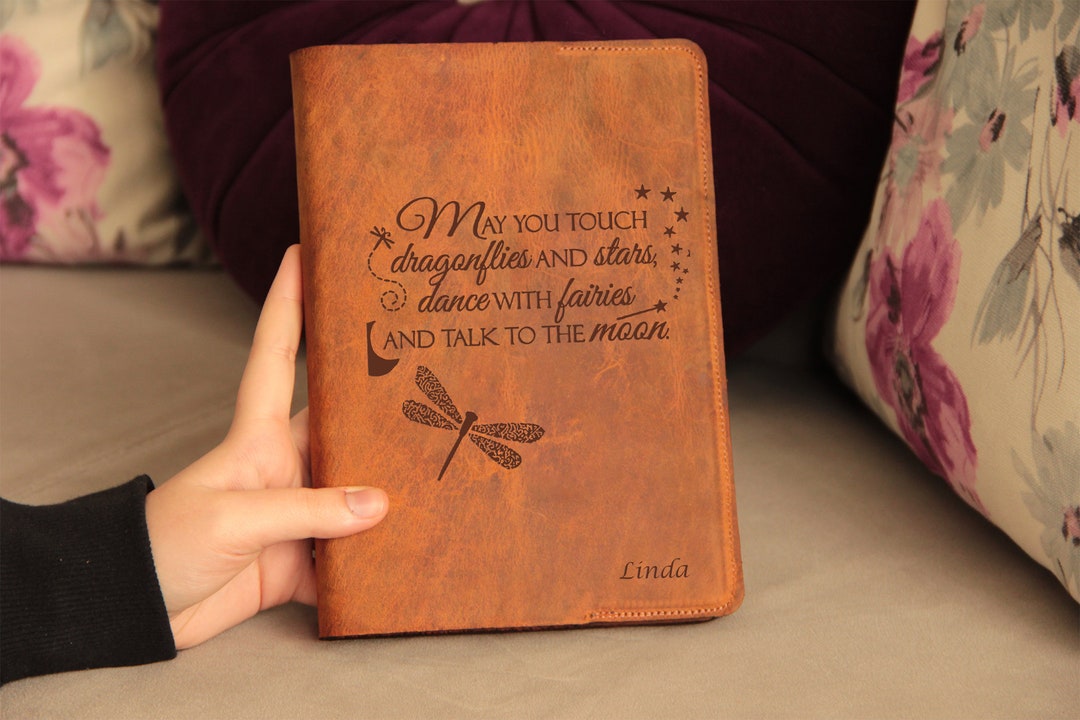 May you touch
dragonflies and stars,
dance with fairies
and talk to the moon.
Linda